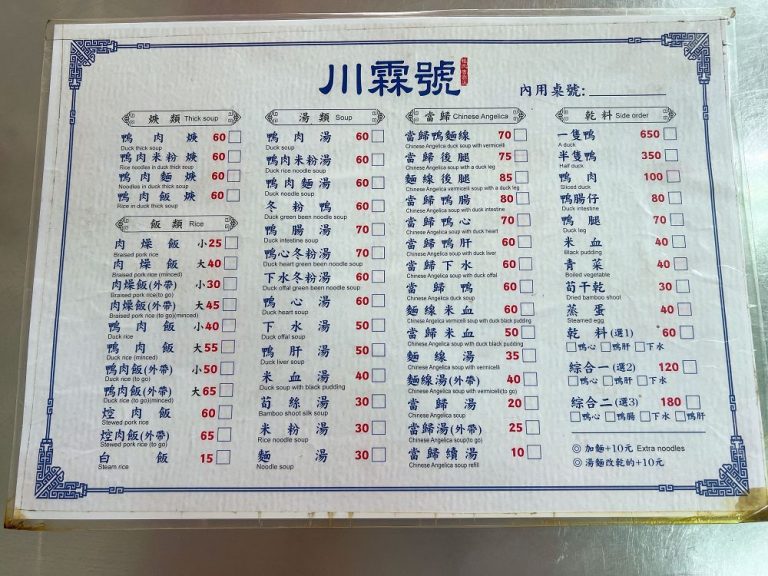 川霖號
內用桌號:
焿類 Thick soup
鴨肉焿 60
Duck thick soup
鴨肉米粉焿 60
Rice noodles in duck thick soup
鴨肉麵焿 60
Noodles in duck thick soup
鴨肉飯焿 60
Rice in duck thick soup
飯類 Rice
肉燥飯 小25
Braised pork rice
肉燥飯 大40
Braised pork rice (minced)
肉燥飯(外帶) 小30
Braised pork rice(to go)
肉燥飯(外帶) 大45
Braised pork rice (to go)(minced)
鴨肉飯 小40
Duck rice
鴨肉飯 大55
Duck rice (minced)
鴨肉飯(外帶) 小50
Duck rice (to go)
鴨肉飯(外帶) 大65
Duck rice (to go)(minced)
焢肉飯 60
Stewed pork rice
焢肉飯(外帶) 65
Stewed pork rice (to go)
白飯 15
Steam rice
湯類 Soup
鴨肉湯 60
Duck soup
鴨肉米粉湯 60
Duck rice noodle soup
鴨肉麵湯 60
Duck noodle soup
冬粉鴨 60
Duck green been noodle soup
鴨腸湯 70
Duck intestine soup
鴨心冬粉湯 70
Duck heart green been noodle soup
下水冬粉湯 60
Duck offal green been noodle soup
鴨心湯 60
Duck heart soup
下水湯 50
Duck offal soup
鴨肝湯 50
Duck liver soup
米血湯 40
Duck soup with black pudding
筍絲湯 30
Bamboo shoot silk soup
米粉湯 30
Rice noodle soup
麵湯 30
Noodle soup
當歸 Chinese Angelica
當歸鴨麵線 70
Chinese Angelica duck soup with vermicelli
當歸後腿 75
Chinese Angelica soup with a duck leg
麵線後腿 85
Chinese Angelica vermicelli soup with a duck leg
當歸鴨腸 80
Chinese Angelica soup with duck intestine
當歸鴨心 70
Chinese Angelica soup with duck heart
當歸鴨肝 60
Chinese Angelica soup with duck liver
當歸下水 60
Chinese Angelica soup with duck offal
當歸鴨 60
Chinese Angelica duck soup
麵線米血 60
Chinese Angelica vermicelli soup with duck black pudding
當歸米血 50
Chinese Angelica soup with duck black pudding
麵線湯 35
Chinese Angelica soup with vermicelli
麵線湯(外帶) 40
Chinese Angelica soup with vermicelli(to go)
當歸湯 20
Chinese Angelica soup
當歸湯(外帶) 25
Chinese Angelica soup(to go)
當歸續湯 10
Chinese Angelica soup refill
乾料 Side order
一隻鴨 650
A duck
半隻鴨 350
Half duck
鴨肉 100
Sliced duck
鴨腸仔 80
Duck intestine
鴨腿 70
Duck leg
米血 40
Black pudding
青菜 40
Boiled vegetable
筍干乾 30
Dried bamboo shoot
蒸蛋 40
Steamed egg
乾料(選1) 60
鴨心 鴨肝 下水
綜合一(選2) 120
鴨心 鴨肝 下水
綜合二(選3) 180
鴨心 鴨腸 下水 鴨肝
◎加麵+10元 Extra noodles
◎湯麵改乾的+10元